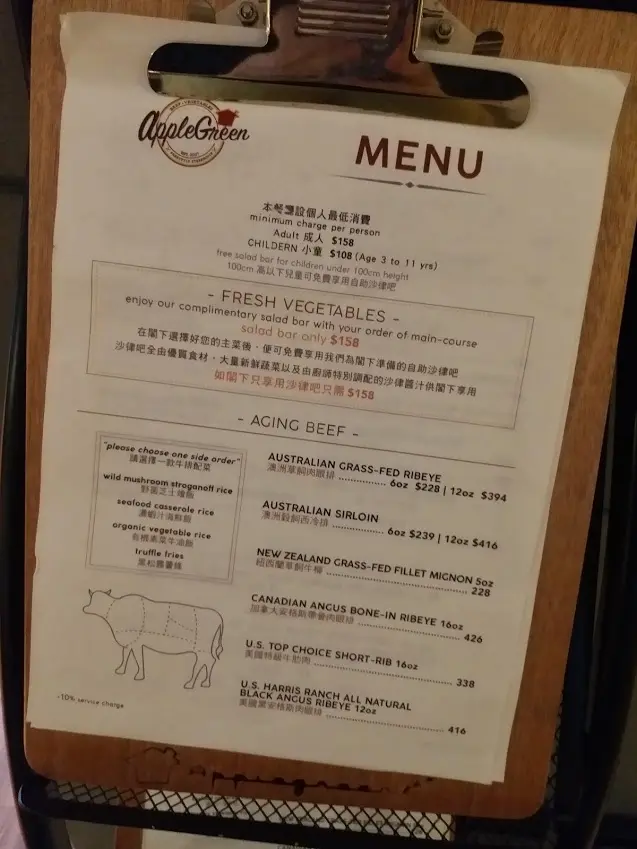 BEEF & VEGETABLES
AppleGreen
MENU
本餐廳設個人最低消費
minimum charge per person
Adult 成人 $158
CHILDERN 小童 $108 (Age 3 to 11 yrs)
free salad bar for children under 100cm height
100cm 高以下兒童可免費享用自助沙律吧
- FRESH VEGETABLES -
enjoy our complimentary salad bar with your order of main-course
salad bar only $158
在閣下選擇好您的主菜後，便可免費享用我們為閣下準備的自助沙律吧
沙律吧全由優質食材，大量新鮮蔬菜以及由廚師特別調配的沙律醬汁供閣下享用
如閣下只享用沙律吧只需 $158
- AGING BEEF -
"please choose one side order"
請選擇一款牛排配菜
wild mushroom stroganoff rice
野菌芝士燴飯
seafood casserole rice
濃蝦汁海鮮飯
organic vegetable rice
有機素菜牛油飯
truffle fries
黑松露薯條
AUSTRALIAN GRASS-FED RIBEYE
澳洲草飼肉眼排 6oz $228 | 12oz $394
AUSTRALIAN SIRLOIN
澳洲穀飼西冷排 6oz $239 | 12oz $416
NEW ZEALAND GRASS-FED FILLET MIGNON 5oz
紐西蘭草飼牛柳 228
CANADIAN ANGUS BONE-IN RIBEYE 16oz
加拿大安格斯帶骨肉眼排 426
U.S. TOP CHOICE SHORT-RIB 16oz
美國特級牛肋肉 338
U.S. HARRIS RANCH ALL NATURAL
BLACK ANGUS RIBEYE 12oz
美國黑安格斯肉眼排 416
-10% service charge
Applegreen